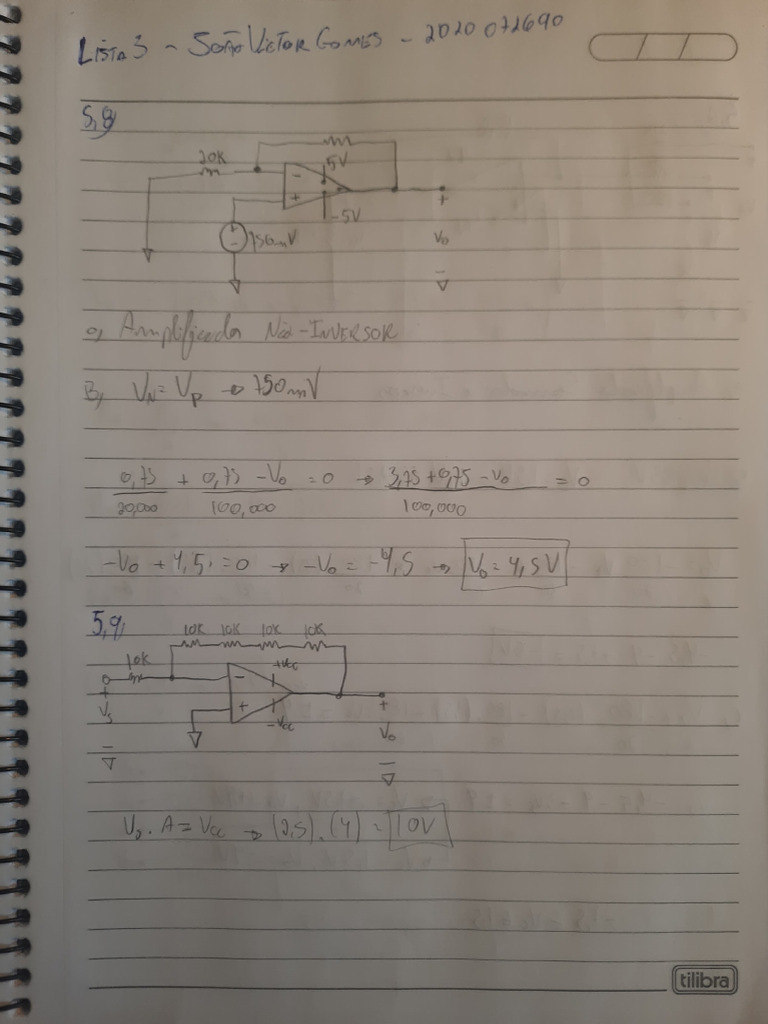 LISTA 3 - JOÃO VICTOR GOMES - 2020072690
5,8)
20K
5V
-
+
-5V
750mV
+
Vo
-
a) Amplificador Não-INVERSOR
B) VN = Vp → 750mV
0,75 + 0,75 - Vo = 0 → 3,75 + 0,75 - Vo = 0
20,000 100,000 100,000
-Vo + 4,5 = 0 → -Vo = -4,5 → Vo = 4,5V
5,9)
10K 10K 10K 10K
10K
+Vcc
-
+
-Vcc
+
Vs
-
+
Vo
-
. A = Vcc → (2,5) . (4) = 10V
tilibra